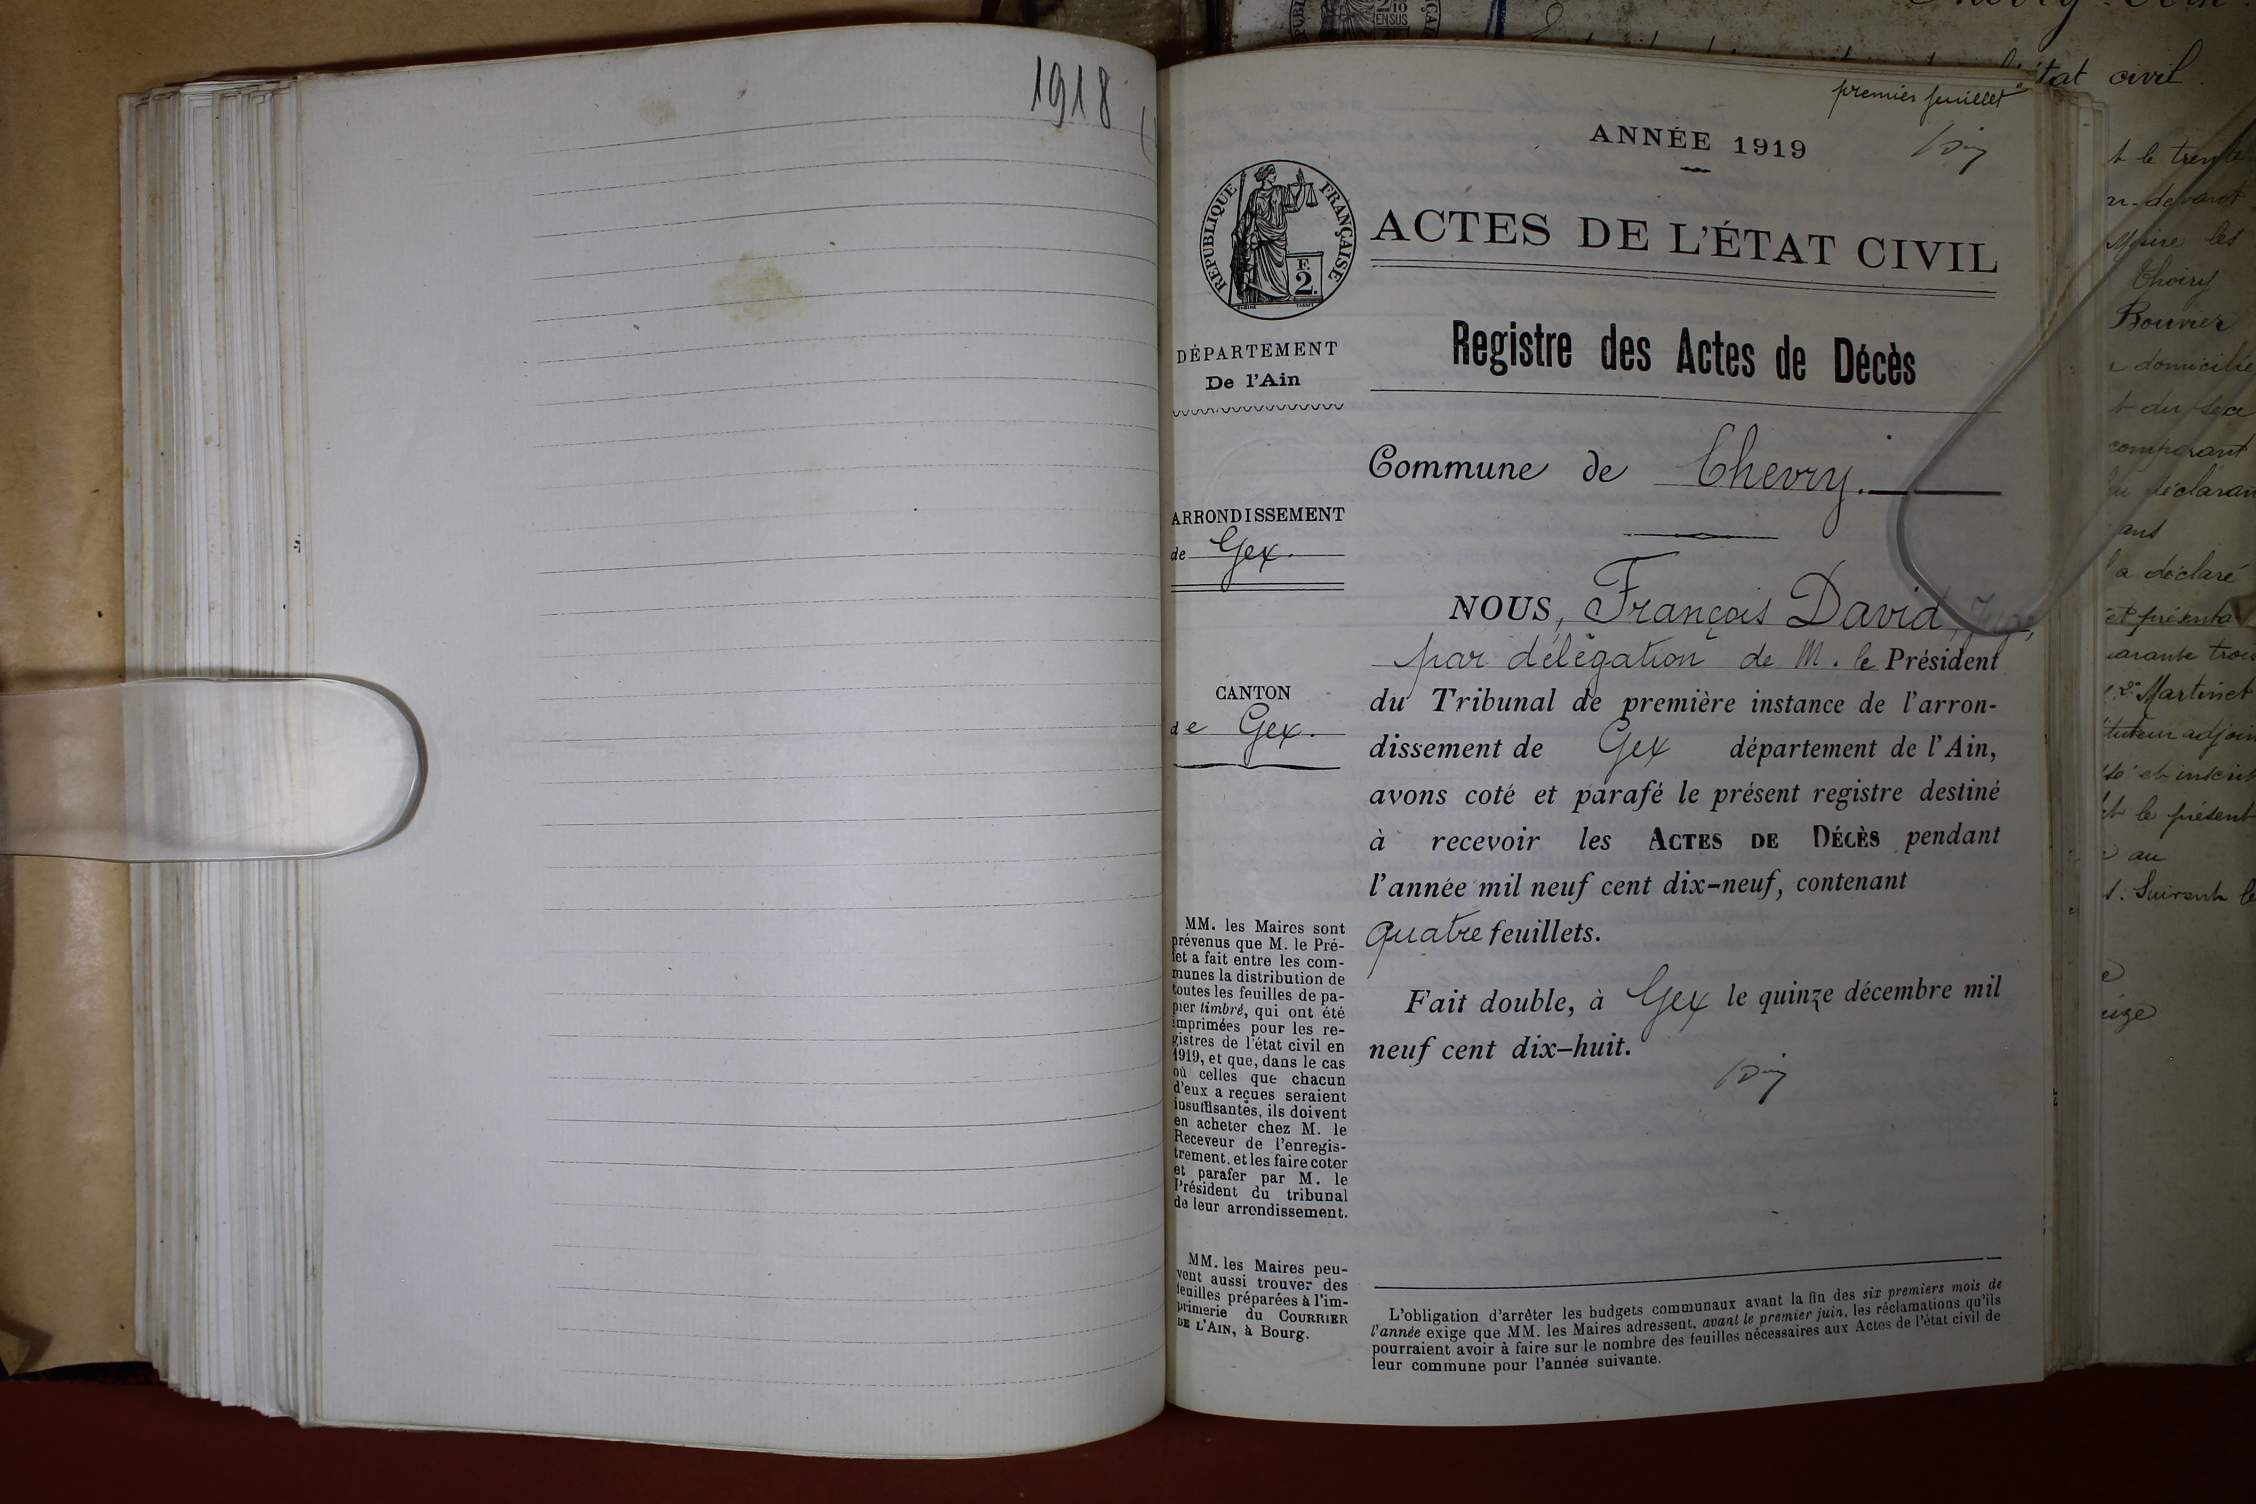 1918
premier feuillet
ANNÉE 1919
ACTES DE L'ÉTAT CIVIL
RÉPUBLIQUE FRANÇAISE
F.
2.
DÉPARTEMENT
De l'Ain
ARRONDISSEMENT
de Gex.
CANTON
de Gex.
MM. les Maires sont
prévenus que M. le Pré-
fet a fait entre les com-
munes la distribution de
toutes les feuilles de pa-
pier timbré, qui ont été
imprimées pour les re-
gistres de l'état civil en
1919, et que, dans le cas
où celles que chacun
d'eux a reçues seraient
insuffisantes, ils doivent
en acheter chez M. le
Receveur de l'enregis-
trement, et les faire coter
et parafer par M. le
Président du tribunal
de leur arrondissement.
MM. les Maires peu-
vent aussi trouver des
feuilles préparées à l'im-
primerie du COURRIER
DE L'AIN, à Bourg.
Registre des Actes de Décès
Commune de Chevry.
NOUS, François David, Juge,
par délégation de M. le Président
du Tribunal de première instance de l'arron-
dissement de Gex département de l'Ain,
avons coté et parafé le présent registre destiné
à recevoir les ACTES DE DÉCÈS pendant
l'année mil neuf cent dix-neuf, contenant
quatre feuillets.
Fait double, à Gex le quinze décembre mil
neuf cent dix-huit.
L'obligation d'arrêter les budgets communaux avant la fin des six premiers mois de
l'année exige que MM. les Maires adressent, avant le premier juin, les réclamations qu'ils
pourraient avoir à faire sur le nombre des feuilles nécessaires aux Actes de l'état civil de
leur commune pour l'année suivante.
état civil.
t le trente
devant
les
Thoiry
Bouvier
domiciliée
t du sexe
comparant
déclarant
ans
a déclaré
et présenta
arante trois
Martinet
tuteur adjoin
et inscrit
t le présent
au
t. Suivent le